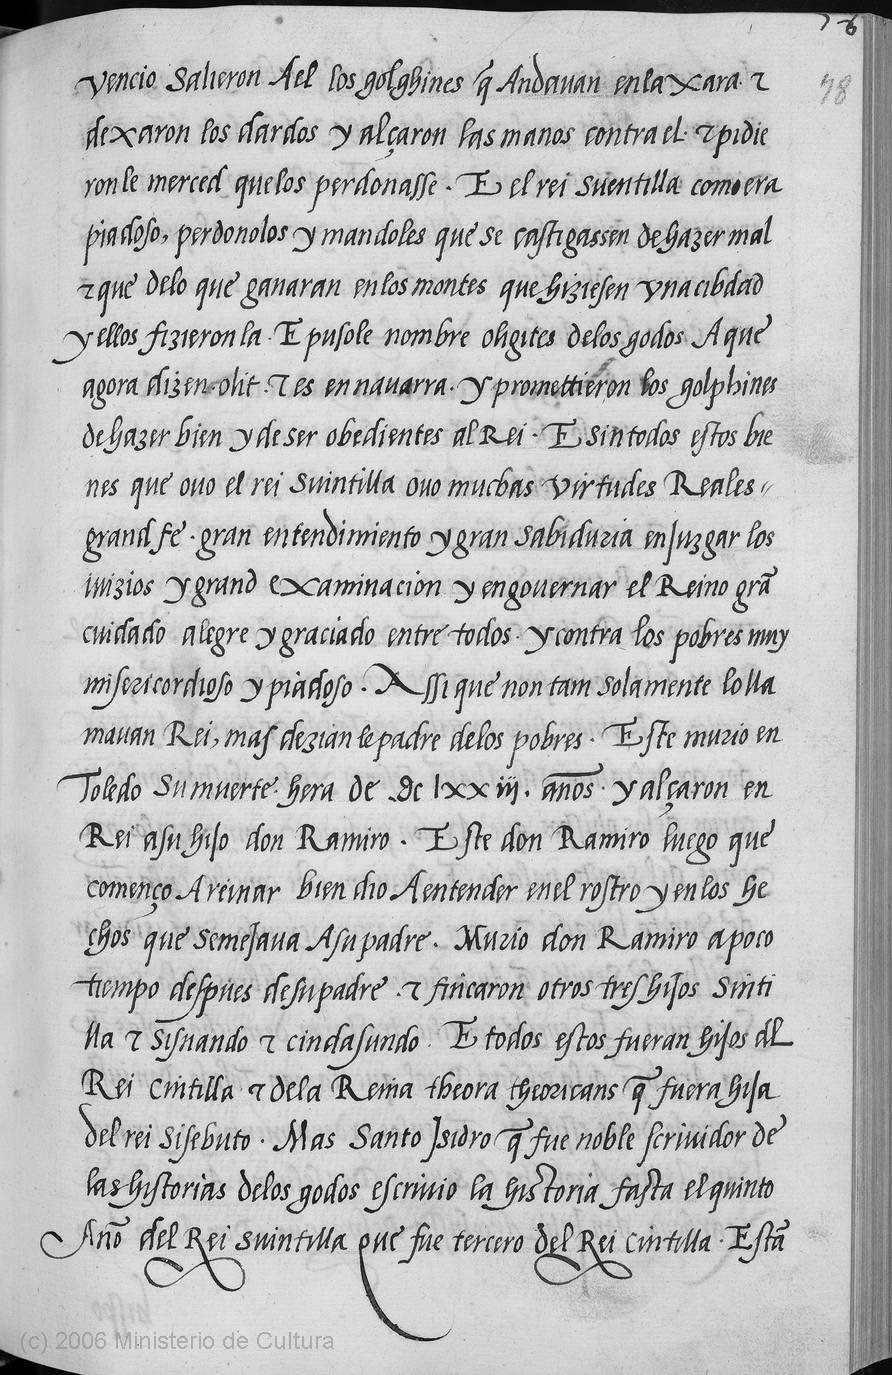 76
78
vencio salieron Ael los golghines q̃ Andauan enla xara ⁊
dexaron los dardos y alçaron las manos contra el · ⁊ pidie
ronle merced quelos perdonasse · E el rei suentilla como era
piadoso, perdonolos y mandoles que se castigassen de hazer mal
⁊ que delo que ganaran enlos montes que hiziesen vna cibdad
y ellos fizieronla · E pusole nombre oligites delos godos Aque
agora dizen olit · ⁊ es en nauarra · y promettieron los golphines
de hazer bien y de ser obedientes al Rei · E sin todos estos bie
nes que ouo el rei suintilla ouo muchas virtudes Reales
grand fe · gran entendimiento y gran sabiduria en Juzgar los
iuizios y grand examinacion y en gouernar el Reino grã
cuidado alegre y graciado entre todos · y contra los pobres muy
misericordioso y piadoso · Assi que non tam solamente lo lla
mauan Rei, mas dezian le padre delos pobres · Este murio en
Toledo su muerte · hera de dc lxxiij · años · y alçaron en
Rei asu hijo don Ramiro · Este don Ramiro luego que
començo A reinar bien dio A entender enel rostro y enlos he
chos que semejaua Asu padre · Murio don Ramiro a poco
tiempo despues desu padre · ⁊ fincaron otros tres hijos Sinti
lla ⁊ sisuando ⁊ cindasundo · E todos estos fueran hijos dl
Rei Cintilla ⁊ dela Reina theora theoricans q̃ fuera hija
del rei sisebuto · Mas Santo Jsidro q̃ fue noble scriuidor de
las historias delos godos escriuio la historia fasta el quinto
Año del Rei suintilla que fue tercero del Rei Cintilla · Estã
(c) 2006 Ministerio de Cultura